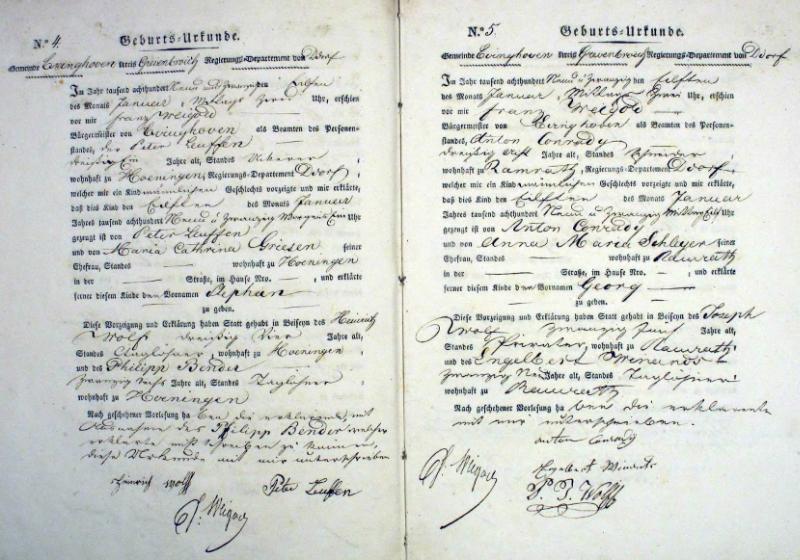 N.º 4. Geburts-Urkunde.
Gemeinde Evinghoven Kreis Grevenbroich Regierungs-Departement von Ddorf
Im Jahr tausend achthundert Neun und zwanzig den Eilften
des Monats Januar, Mittags Uhr, erschien
vor mir Franz Weigold
Bürgermeister von Evinghoven als Beamten des Personen-
standes, der Peter Leuffen
dreißig Ein Jahre alt, Standes Ackerer,
wohnhaft zu Hoeningen, Regierungs-Departement Ddorf,
welcher mir ein Kind männlichen Geschlechts vorzeigte und mir erklärte,
daß dies Kind den Eilften des Monats Januar
Jahres tausend achthundert Neun u zwanzig Morgens Ein Uhr
gezeugt ist von Peter Leuffen
und von Maria Cathrina Griesen seiner
Ehefrau, Standes wohnhaft zu Hoeningen
in der Straße, im Hause Nro. , und erklärte
ferner diesem Kinde den Vornamen Stephan
zu geben.
Diese Vorzeigung und Erklärung haben Statt gehabt in Beiseyn des Heinrich
Wolff dreißig Vier Jahre alt,
Standes , wohnhaft zu Hoeningen
und des Philipp Bender
zwanzig sechs Jahre alt, Standes Taglöhner,
wohnhaft zu Hoeningen
Nach geschehener Vorlesung haben die erklärende, mit
Ausnahme des Philipp Bender welcher
erklärte nicht schreiben zu können,
diese Urkunde mit mir unterschrieben
Heinrich Wolff Peter Leuffen
N.º 5. Geburts-Urkunde.
Gemeinde Evinghoven Kreis Grevenbroich Regierungs-Departement von Ddorf
Im Jahr tausend achthundert Neun u zwanzig den Eilften
des Monats Januar, Mittags Uhr, erschien
vor mir Franz Weigold
Bürgermeister von Evinghoven als Beamten des Personen-
standes, Anton Conrady
dreißig Jahre alt, Standes Schneider,
wohnhaft zu Ramrath, Regierungs-Departement Ddorf,
welcher mir ein Kind männlichen Geschlechts vorzeigte und mir erklärte,
daß dies Kind den Eilften des Monats Januar
Jahres tausend achthundert Neun u zwanzig Uhr
gezeugt ist von Anton Conrady
und von Anna Maria Schleyer seiner
Ehefrau, Standes wohnhaft zu Ramrath
in der Straße, im Hause Nro. , und erklärte
ferner diesem Kinde den Vornamen Georg
zu geben.
Diese Vorzeigung und Erklärung haben Statt gehabt in Beiseyn des Joseph
Wolff zwanzig fünf Jahre alt,
Standes , wohnhaft zu Ramrath
und des Engelbert
zwanzig Jahre alt, Standes Taglöhner
wohnhaft zu Ramrath
Nach geschehener Vorlesung haben die erklärende
mit mir unterschrieben.
Anton Conrady
Engelbert
Wolff